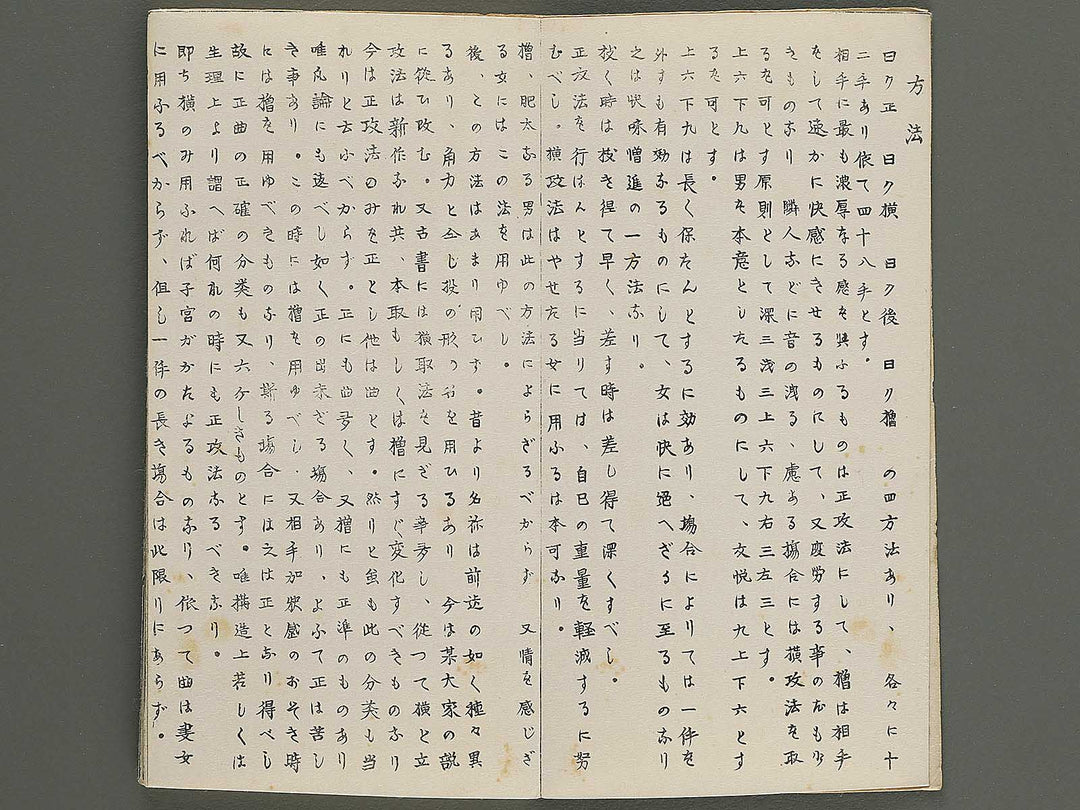 方法
曰ク正　曰ク横　曰ク後　曰ク櫓　の四方法あり、各々に十
二手あり依て四十八手とす。
相手に最も濃厚なる感を与ふるものは正攻法にして、櫓は相手
をして速かに快感にきせるものにして、又疲労する事のおも少
きものなり隣人などに音の洩る、慮ある場合には横攻法を取
るを可とす原則として深三浅三上六下九右三左三とす。
上六下九は男を本意としたるものにして、女悦は九上下六とす
るを可とす。
上六下九は長く保たんとするに効あり、場合によりては一件を
外すも有効なるものにして、女は快に絶へざるに至るものなり
之は快味増進の一方法なり。
抜く時は抜き得て早く、差す時は差し得て深くすべし。
正攻法を行はんとするに当りては、自己の重量を軽減するに努
むべし。横攻法はやせたる女に用ふるは本可なり。
櫓、肥太なる男は此の方法によらざるべからず　又情を感じざ
る女にはこの法を用ゆべし。
後、この方法はあまり用ひず。昔より名称は前述の如く種々異
るあり、角力と仝し投の形の名を用ひるあり　今は某大家の説
に従ひ改む。又古書には横取法を見ざる事多し、従つて横と立
攻法は新作なれ共、本取もしくは櫓にすぐ変化すべきものなり
今は正攻法のみを正とし他は曲とす。然りと虽も此の分类も当
れりと云ふべからず。正にも曲多く、又櫓にも正準のものあり
唯凡論にも述べし如く正の出来ざる場合あり、よふて正は苦し
き事あり。この時には櫓を用ゆべし、又相手加快感のおそき時
には櫓を用ゆべきものなり、斯る場合には之は正となり得べし
故に正曲の正確の分类も又六ヶしきものとす。唯構造上若しくは
生理上より謂へば何れの時にも正攻法なるべきなり。
即ち横のみ用ふれば子宮がかたよるものなり、依つて曲は妻女
に用ふるべからず、但し一件の長き場合は此限りにあらず。